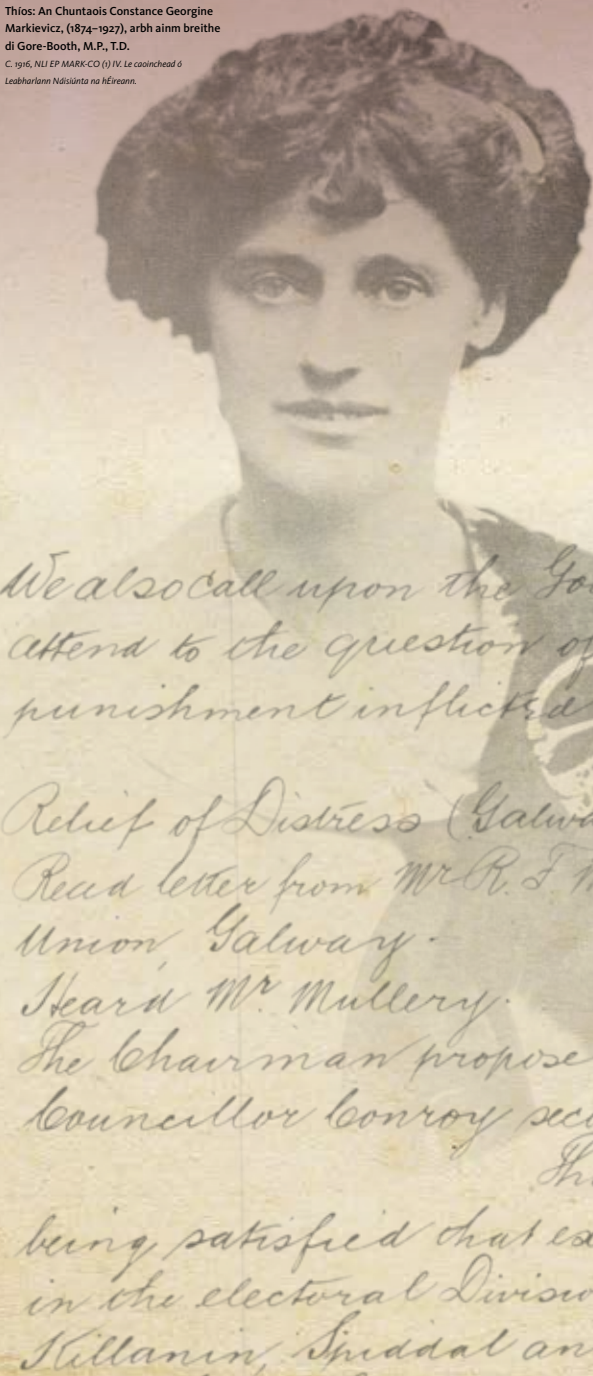 Thíos: An Chuntaois Constance Georgine
Markievicz, (1874–1927), arbh ainm breithe
di Gore-Booth, M.P., T.D.
C. 1916, NLI EP MARK-CO (1) IV. Le caoinchead ó
Leabharlann Náisiúnta na hÉireann.
We also call upon the
attend to the question of
punishment inflicted
Relief of Distress (Galwa
Read letter from Mr R. F.
Union, Galway.
Heard Mr. Mullery.
The Chairman propose
Councillor Conroy seco
Th
being satisfied that ex
in the electoral Divisio
Killanin, Spiddal an